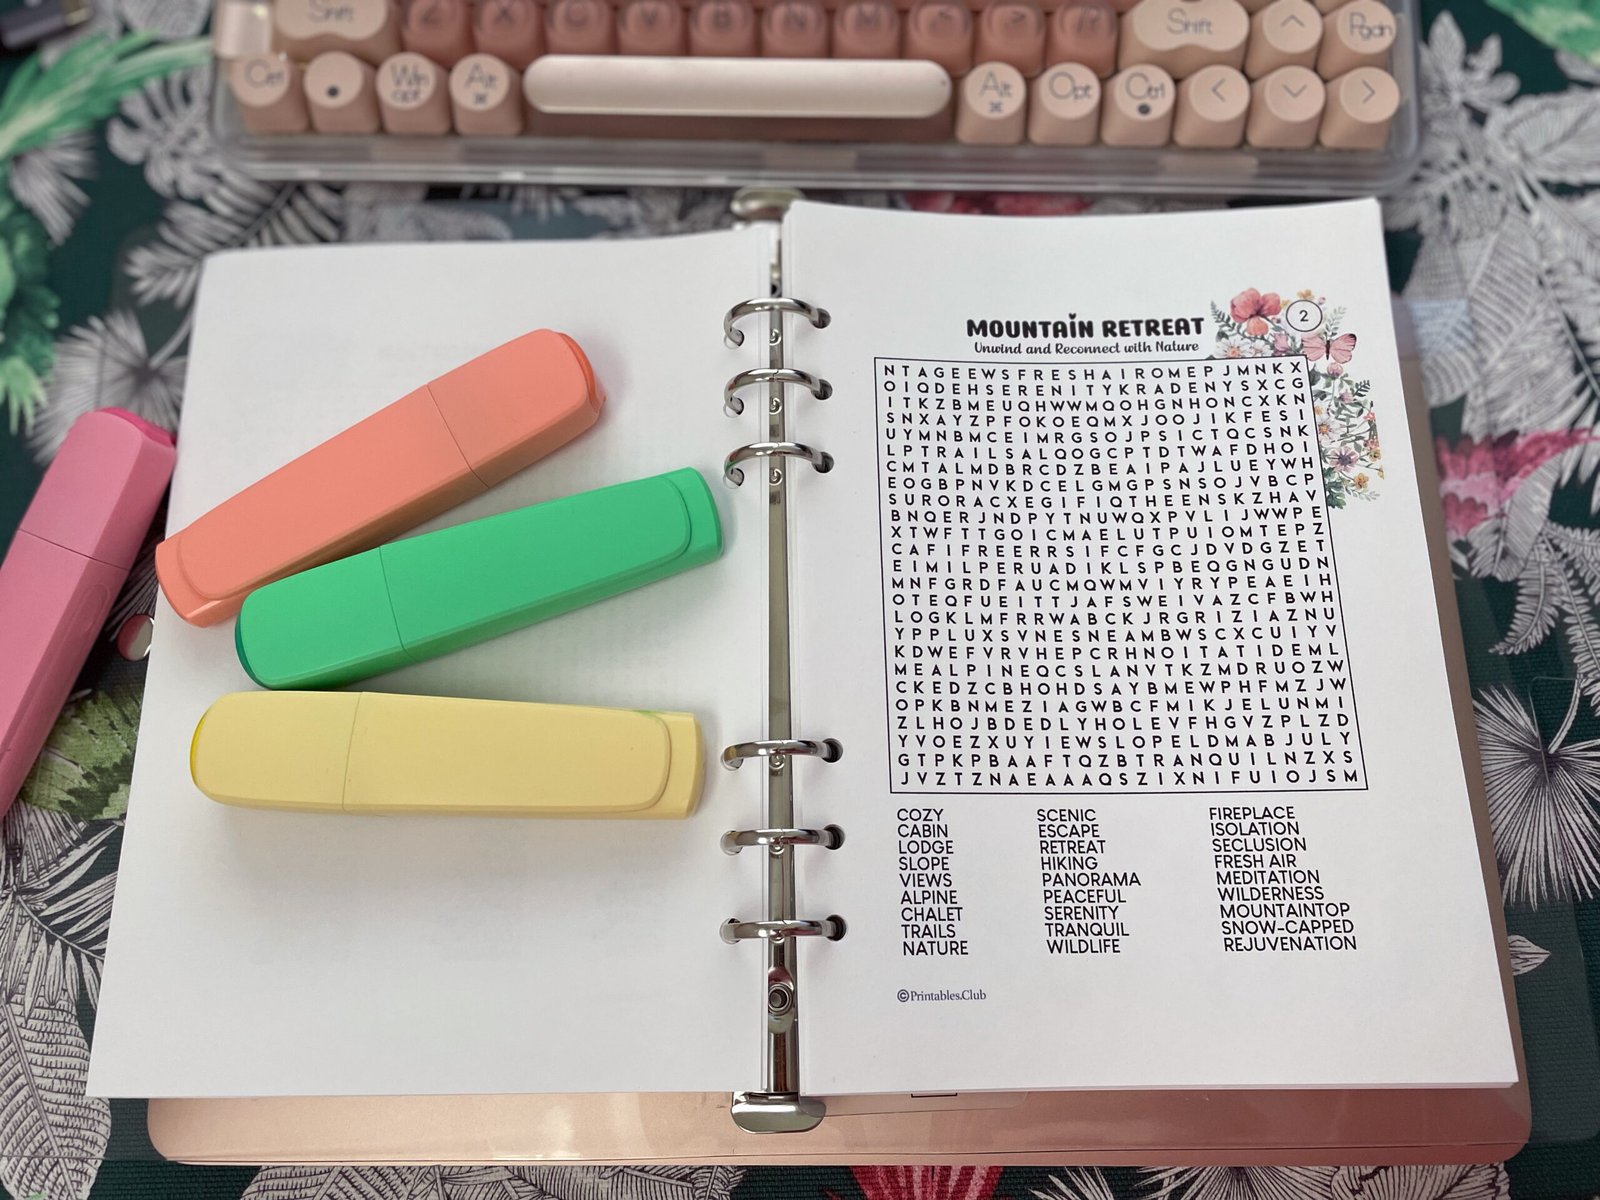 Shift Z X C V B N M < > /? Shift ^ Pgdn
Ctrl Win opt Alt Alt Opt Ctrl < >
MOUNTAIN RETREAT
2
Unwind and Reconnect with Nature
N T A G E E W S F R E S H A I R O M E P J M N K X
O I Q D E H S E R E N I T Y K R A D E N Y S X C G
I T K Z B M E U Q H W W M Q O H G N H O N C X K N
S N X A Y Z P F O K O E Q M X J O O J I K F E S I
U Y M N B M C E I M R G S O J P S I C T Q C S N K
L P T R A I L S A L Q O G C P T D T W A F D H O I
C M T A L M D B R C D Z B E A I P A J L U E Y W H
E O G B P N V K D C E L G M G P S N S O J V B C P
S U R O R A C X E G I F I Q T H E E N S K Z H A V
B N Q E R J N D P Y T N U W Q X P V L I J W W P E
X T W F T T G O I C M A E L U T P U I O M T E P Z
C A F I F R E E R R S I F C F G C J D V D G Z E T
E I M I L P E R U A D I K L S P B E Q G N G U D N
M N F G R D F A U C M Q W M V I Y R Y P E A E I H
O T E Q F U E I T T J A F S W E I V A Z C F B W H
L O G K L M F R R W A B C K J R G R I Z I A Z N U
Y P P L U X S V N E S N E A M B W S C X C U I Y V
K D W E F V R V H E P C R H N O I T A T I D E M L
M E A L P I N E Q C S L A N V T K Z M D R U O Z W
C K E D Z C B H O H D S A Y B M E W P H F M Z J W
O P K B N M E Z I A G W B C F M I K J E L U N M I
Z L H O J B D E D L Y H O L E V F H G V Z P L Z D
Y V O E Z X U Y I E W S L O P E L D M A B J U L Y
G T P K P B A A F T Q Z B T R A N Q U I L N Z X S
J V Z T Z N A E A A A Q S Z I X N I F U I O J S M
COZY SCENIC FIREPLACE
CABIN ESCAPE ISOLATION
LODGE RETREAT SECLUSION
SLOPE HIKING FRESH AIR
VIEWS PANORAMA MEDITATION
ALPINE PEACEFUL WILDERNESS
CHALET SERENITY MOUNTAINTOP
TRAILS TRANQUIL SNOW-CAPPED
NATURE WILDLIFE REJUVENATION
©Printables.Club